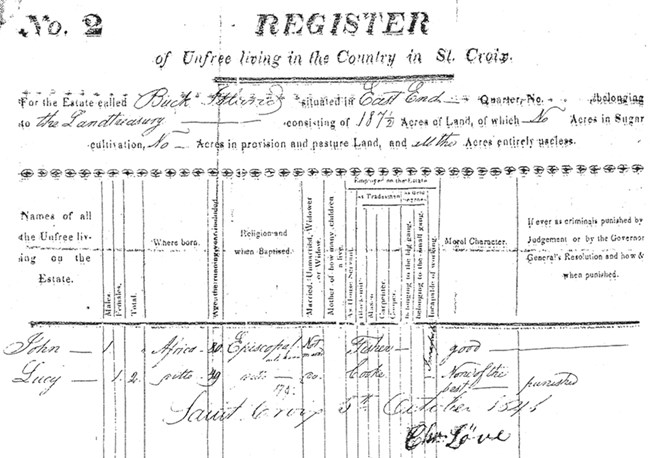 No. 2 REGISTER
of Unfree living in the Country in St. Croix.
For the Estate called Buck Island situated in East End Quarter, No. belonging
to the Landtreasury consisting of 187½ Acres of Land, of which No Acres in Sugar
cultivation, No Acres in provision and pasture Land, and all the Acres entirely useless.
Names of all the Unfree living on the Estate.
Males.
Females.
Total.
Where born.
Age, the running year included.
Religion and when Baptised.
Married, Unmarried, Widower or Widow.
Mother of how many children a live.
Employed on the Estate
As House Servant.
as Tradesman
Mason
Carpenter.
Cooper.
belonging to the big gang.
belonging to the small gang.
Incapable of working.
Moral Character.
If ever as criminals punished by Judgement or by the Governor General's Resolution and how & when punished.
John 1 Africa 80 Episcopal Not Fisher good
Lucy 1 2 ditto 49 no Cooke None of the best punished
Saint Croix 5th October
Løve